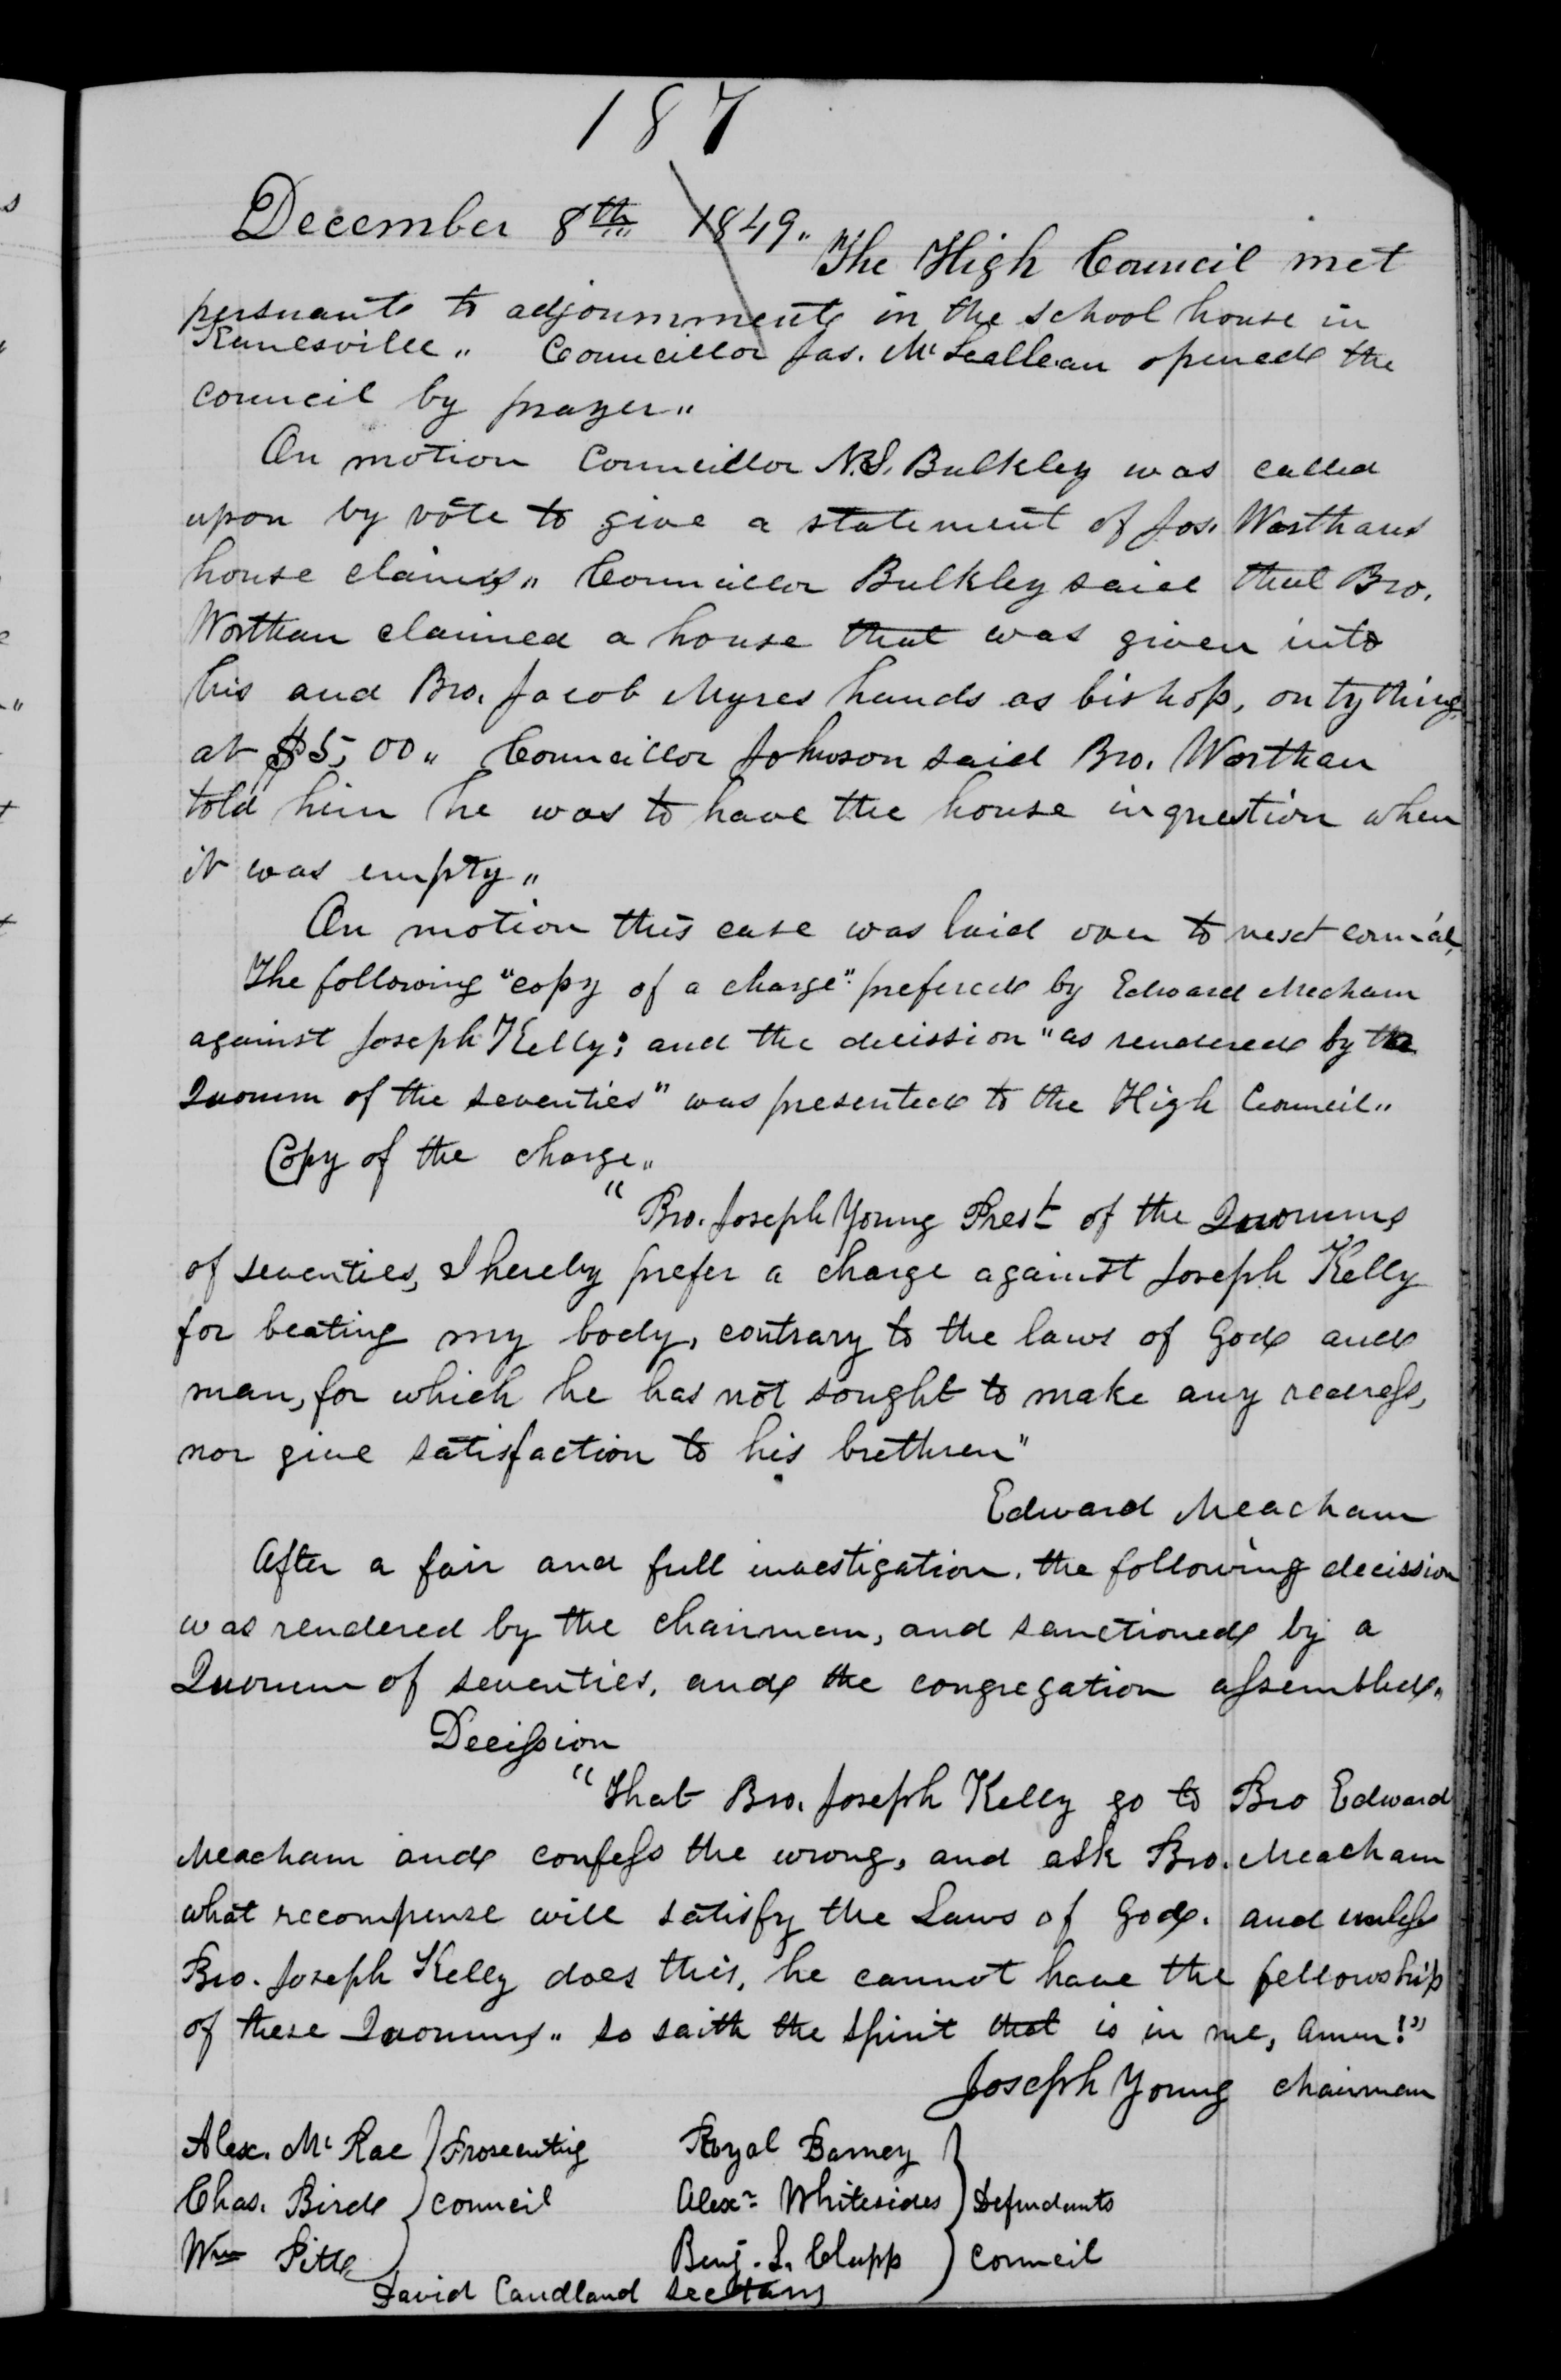 187
December 8th 1849.,
The High Council met
persuant to adjournment in the school house in
Kanesville., Councillor Jas. McLeallean opened the
council by prayer.,
On motion Councillor N.S. Bulkley was called
upon by vote to give a statement of Jos. Worthans
house claims., Councillor Bulkley said that Bro.
Worthan claimed a house that was given into
his and Bro. Jacob Myres hands as bishop, on tything
at $5,00., Councillor Johnson said Bro. Worthan
told him he was to have the house in question when
it was empty.,
On motion this case was laid over to next council,
The following "copy of a charge" prefered by Edward Mecham
against Joseph Kelly; and the decission "as rendered by the
Quorum of the seventies" was presented to the High Council.,
Copy of the charge.,
"Bro. Joseph Young Prest of the Quorums
of seventies, I hereby prefer a charge against Joseph Kelly
for beating my body, contrary to the laws of God and
man, for which he has not sought to make any redress,
nor give satisfaction to his brethren"
Edward Meacham
After a fair and full investigation, the following decission
was rendered by the chairman, and sanctioned by a
Quorum of seventies, and the congregation assembled.,
Decission
"That Bro. Joseph Kelly go to Bro Edward
Meacham and confess the wrong, and ask Bro. Meacham
what recompense will satisfy the Laws of God. and unless
Bro. Joseph Kelly does this, he cannot have the fellowship
of these Quorums., so saith the Spirit that is in me, amen!"
Joseph Young chairman
Alex. Mc Rae } Prosecuting Royal Barney
Chas. Bird } council Alexr Whitesides } Defendants
Wm Pitt Benj. L. Clapp } council
David Candland sectary